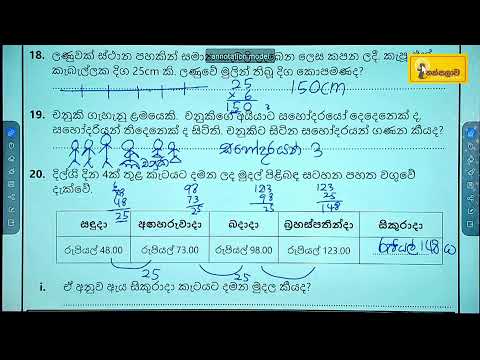 18. ලණුවක් ස්ථාන පහකින් සමාන
ලෙස කපන ලදී.
annotation mode
තක්සලාව
කැබැල්ලක දිග 25cm කි. ලණුවේ මුලින් තිබූ දිග කොපමණද?
25
× 6
150
150cm
19. චතුකි ගැහැනු ළමයෙකි. චතුකිගේ අයියාට සහෝදරයෝ දෙදෙනෙක් ද,
සහෝදරියන් තිදෙනෙක් ද සිටිති. චතුකිට සිටින සහෝදරයන් ගණන කීයද?
සහෝදරයන් 3
20. දිල්ශි දින 4ක් තුළ කැටයට දමන ලද මුදල් පිළිබඳ සටහන පහත වගුවේ
දැක්වේ.
73 98 123 123
48 73 98 25
25 25 25 148
සඳුදා අඟහරුවාදා බදාදා බ්‍රහස්පතින්දා සිකුරාදා
රුපියල් 48.00 රුපියල් 73.00 රුපියල් 98.00 රුපියල් 123.00 රුපියල් 148
25 25 25
i. ඒ අනුව ඇය සිකුරාදා කැටයට දමන මුදල කීයද?